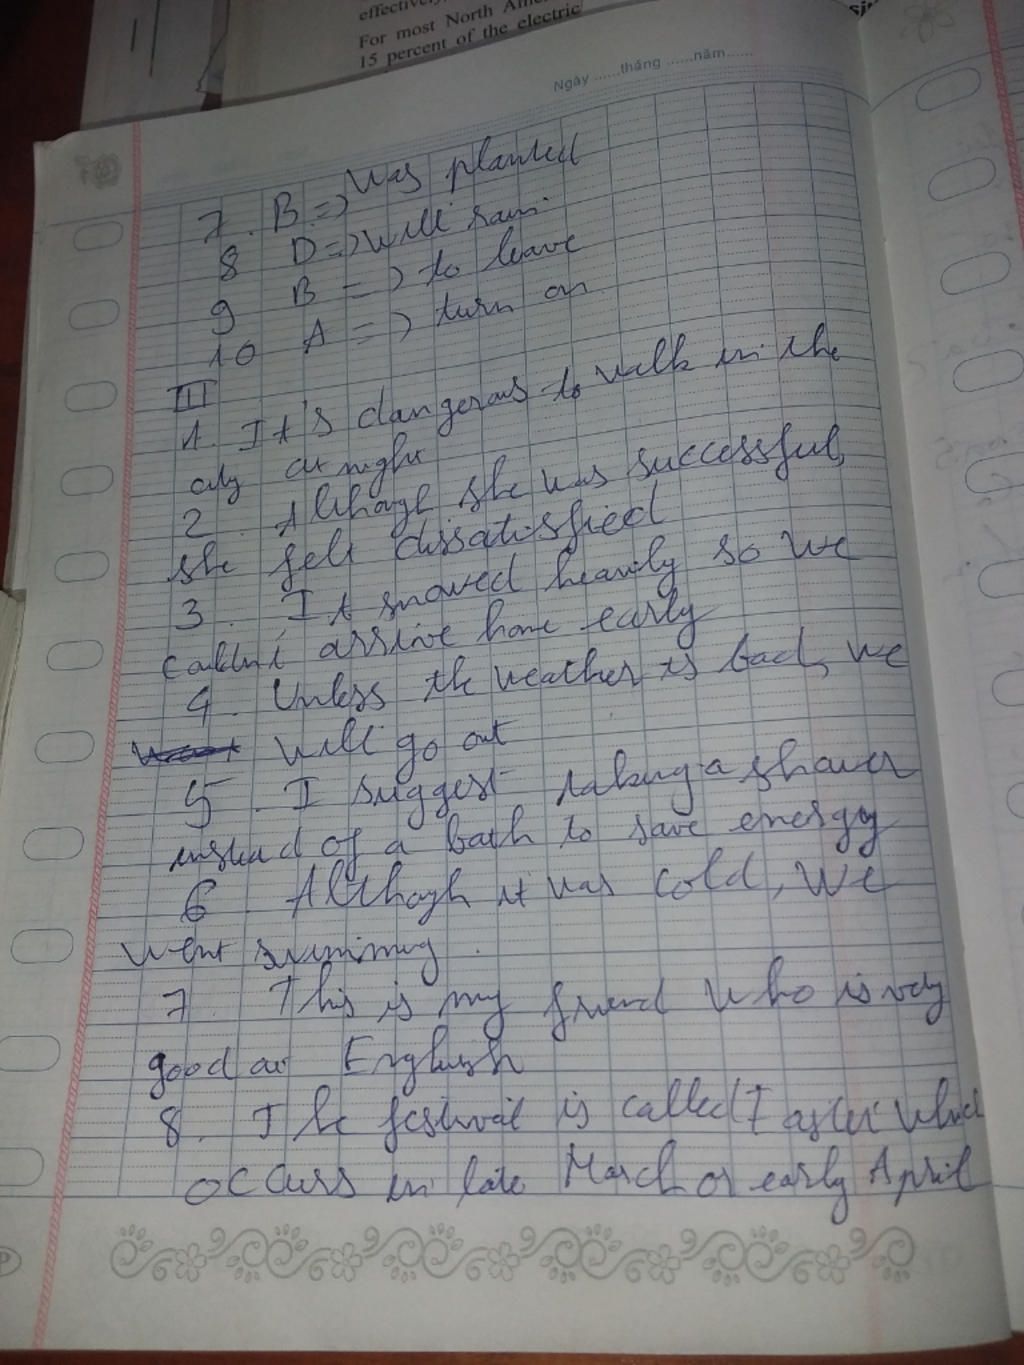 effectively
For most North Ame
15 percent of the electric
Ngày ......tháng ......năm......
7. B => Was planted
8 D => will rain
9 B => to leave
10 A => turn on
III
1. It's dangerous to walk in the
city at night
2. Although she was successful,
she felt dissatisfied
3. It snowed heavily so we
couldn't arrive home early
4. Unless the weather is bad, we
will go out
5. I suggest taking a shower
instead of a bath to save energy
6. Although it was cold, we
went swimming.
7. This is my friend who is very
good at English
8. The festival is called Easter which
occurs in late March or early April